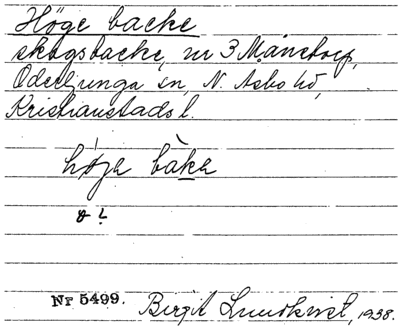 Höge backe
skogsbacke, nr 3 Månstorp,
Oderljunga sn, N. Åsbo hd,
Kristianstads l.
höge bàke
Nr 5499. Birgit Lundkvist, 1938.